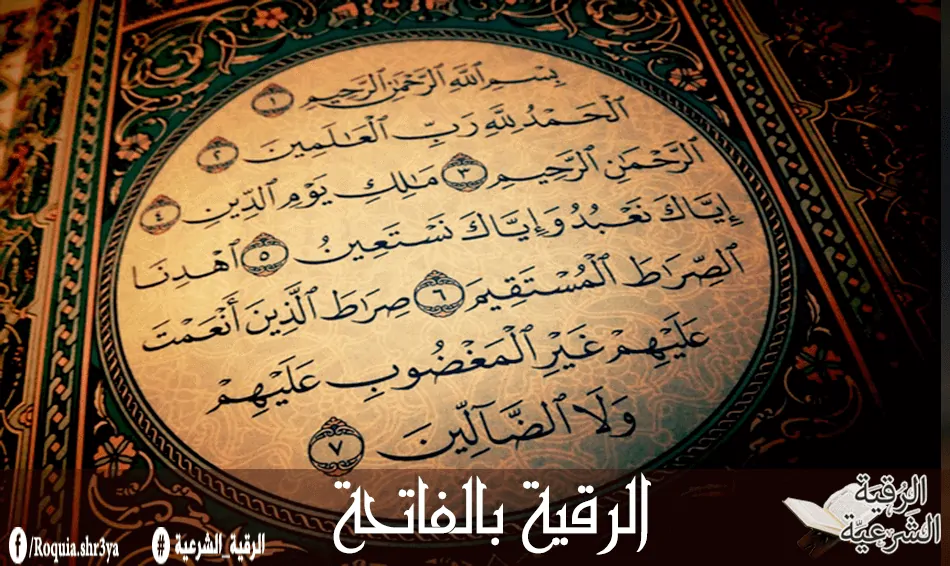 بِسْمِ ٱللَّهِ ٱلرَّحْمَٰنِ ٱلرَّحِيمِ ١
ٱلْحَمْدُ لِلَّهِ رَبِّ ٱلْعَٰلَمِينَ ٢
ٱلرَّحْمَٰنِ ٱلرَّحِيمِ ٣ مَٰلِكِ يَوْمِ ٱلدِّينِ ٤
إِيَّاكَ نَعْبُدُ وَإِيَّاكَ نَسْتَعِينُ ٥ ٱهْدِنَا
ٱلصِّرَٰطَ ٱلْمُسْتَقِيمَ ٦ صِرَٰطَ ٱلَّذِينَ أَنْعَمْتَ
عَلَيْهِمْ غَيْرِ ٱلْمَغْضُوبِ عَلَيْهِمْ
وَلَا ٱلضَّآلِّينَ ٧
الرقية بالفاتحة
الرُقية
الشَرعيَّة
# الرقية_الشرعية
f /Roquia.shr3ya